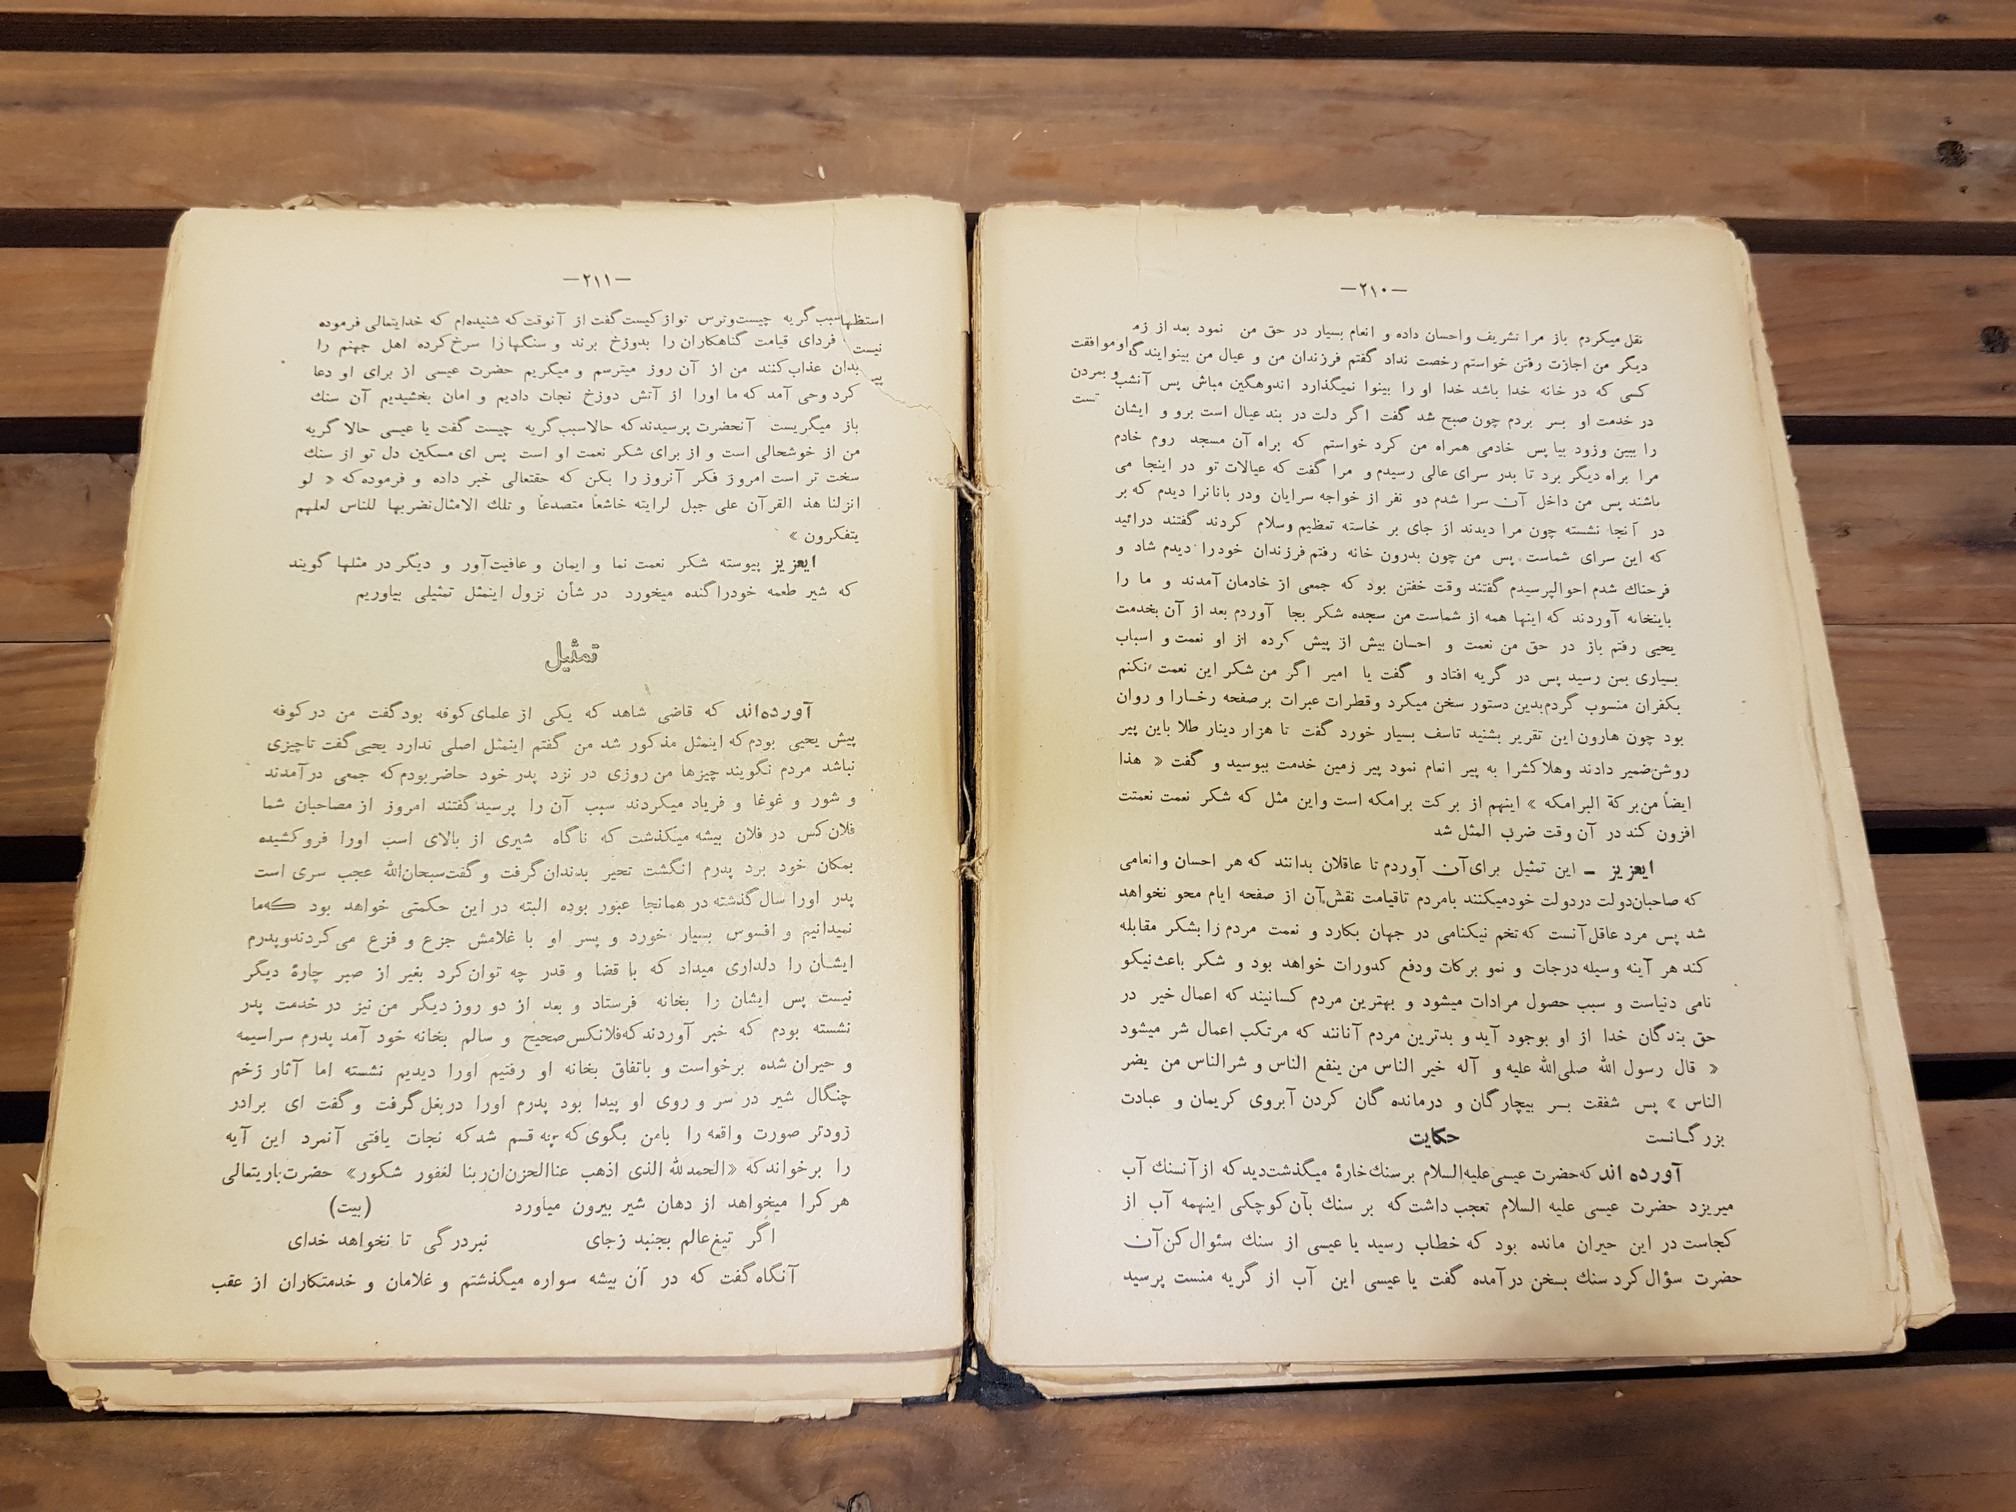 —۲۱۰—
نقل میکردم باز مرا تشریف واحسان داده و انعام بسیار در حق من نمود بعد از
دیگر من اجازت رفتن خواستم رخصت نداد گفتم فرزندان من و عیال من بینوایند
کسی که در خانه خدا باشد خدا او را بینوا نمیگذارد اندوهگین مباش پس آنشب
در خدمت او بسر بردم چون صبح شد گفت اگر دلت در بند عیال است برو و ایشان
را ببین وزود بیا پس خادمی همراه من کرد خواستم که براه آن مسجد روم خادم
مرا براه دیگر برد تا بدر سرای عالی رسیدم و مرا گفت که عیالات تو در اینجا می
باشند پس من داخل آن سرا شدم دو نفر از خواجه سرایان ودر بانانرا دیدم که بر
در آنجا نشسته چون مرا دیدند از جای بر خاسته تعظیم وسلام کردند گفتند درائید
که این سرای شماست پس من چون بدرون خانه رفتم فرزندان خودرا دیدم شاد و
فرحناك شدم احوالپرسیدم گفتند وقت خفتن بود که جمعی از خادمان آمدند و ما را
باینخانه آوردند که اینها همه از شماست من سجده شکر بجا آوردم بعد از آن بخدمت
یحیی رفتم باز در حق من نعمت و احسان بیش از پیش کرده از او نعمت و اسباب
بسیاری بمن رسید پس در گریه افتاد و گفت یا امیر اگر من شکر این نعمت نکنم
بکفران منسوب گردم بدین دستور سخن میکرد وقطرات عبرات برصفحه رخسارا و روان
بود چون هارون این تقریر بشنید تاسف بسیار خورد گفت تا هزار دینار طلا باین پیر
روشن‌ضمیر دادند وهلاکشرا به پیر انعام نمود پیر زمین خدمت ببوسید و گفت « هذا
ایضاً من برکة البرامکه » اینهم از برکت برامکه است واین مثل که شکر نعمت نعمتت
افزون کند در آن وقت ضرب المثل شد
ایعزیز ـ این تمثیل برای آن آوردم تا عاقلان بدانند که هر احسان وانعامی
که صاحبان دولت دردولت خودمیکنند بامردم تاقیامت نقش آن از صفحه ایام محو نخواهد
شد پس مرد عاقل آنست که تخم نیکنامی در جهان بکارد و نعمت مردم را بشکر مقابله
کند هر آینه وسیله درجات و نمو برکات ودفع کدورات خواهد بود و شکر باعث نیکو
نامی دنیاست و سبب حصول مرادات میشود و بهترین مردم کسانیند که اعمال خیر در
حق بندگان خدا از او بوجود آید و بدترین مردم آنانند که مرتکب اعمال شر میشود
« قال رسول الله صلی‌الله علیه و آله خیر الناس من ینفع الناس و شر الناس من یضر
الناس » پس شفقت بسر بیچارگان و درمانده گان کردن آبروی کریمان و عبادت
بزرگانست حکایت
آورده اند که حضرت عیسی علیه‌السلام بر سنك خارهٔ میگذشت دید که از آنسنك آب
میریزد حضرت عیسی علیه السلام تعجب داشت که بر سنك بآن کوچکی اینهمه آب از
کجاست در این حیران مانده بود که خطاب رسید یا عیسی از سنك سئوال کن آن
حضرت سؤال کرد سنك بسخن درآمده گفت یا عیسی این آب از گریه منست پرسید
او موافقت
و بمردن
تست
—۲۱۱—
استظها
نیست
پیر
سبب گریه چیست وترس تو از کیست گفت از آنوقت که شنیده‌ام که خدایتعالی فرموده
فردای قیامت گناهکاران را بدوزخ برند و سنگهارا سرخ کرده اهل جهنم را
بدان عذاب کنند من از آن روز میترسم و میگریم حضرت عیسی از برای او دعا
کرد وحی آمد که ما اورا از آتش دوزخ نجات دادیم و امان بخشیدیم آن سنك
باز میگریست آنحضرت پرسیدند که حالا سبب گریه چیست گفت یا عیسی حالا گریه
من از خوشحالی است و از برای شکر نعمت او است پس ای مسکین دل تو از سنك
سخت تر است امروز فکر آنروز را بکن که حقتعالی خبر داده و فرموده که « لو
انزلنا هذ القرآن علی جبل لرایته خاشعاً متصدعاً و تلك الامثال نضربها للناس لعلهم
یتفکرون »
ایعزیز پیوسته شکر نعمت نما و ایمان و عافیت آور و دیگر در مثلها گویند
که شیر طعمه خودرا گنده میخورد در شأن نزول اینمثل تمثیلی بیاوریم
تمثیل
آورده‌اند که قاضی شاهد که یکی از علمای کوفه بود گفت من در کوفه
پیش یحیی بودم که اینمثل مذکور شد من گفتم اینمثل اصلی ندارد یحیی گفت تاچیزی
نباشد مردم نگویند چیزها من روزی در نزد پدر خود حاضر بودم که جمعی درآمدند
و شور و غوغا و فریاد میکردند سبب آن را پرسید گفتند امروز از مصاحبان شما
فلان کس در فلان بیشه میگذشت که ناگاه شیری از بالای اسب اورا فرو کشیده
بمکان خود برد پدرم انگشت تحیر بدندان گرفت و گفت سبحان‌الله عجب سری است
پدر اورا سال گذشته در همانجا عبور بوده البته در این حکمتی خواهد بود که ما
نمیدانیم و افسوس بسیار خورد و پسر او با غلامش جزع و فزع می کردند و پدرم
ایشان را دلداری میداد که با قضا و قدر چه توان کرد بغیر از صبر چارهٔ دیگر
نیست پس ایشان را بخانه فرستاد و بعد از دو روز دیگر من نیز در خدمت پدر
نشسته بودم که خبر آوردند که فلانکس صحیح و سالم بخانه خود آمد پدرم سراسیمه
و حیران شده برخواست و باتفاق بخانه او رفتیم اورا دیدیم نشسته اما آثار زخم
چنگال شیر در سر و روی او پیدا بود پدرم اورا در بغل گرفت و گفت ای برادر
زودتر صورت واقعه را بامن بگوی که چه قسم شد که نجات یافتی آنمرد این آیه
را برخواند که «الحمدلله الذی اذهب عنا الحزن ان ربنا لغفور شکور» حضرت باریتعالی
هر کرا میخواهد از دهان شیر بیرون میآورد (بیت)
اگر تیغ عالم بجنبد زجای نبرد رگی تا نخواهد خدای
آنگاه گفت که در آن بیشه سواره میگذشتم و غلامان و خدمتکاران از عقب